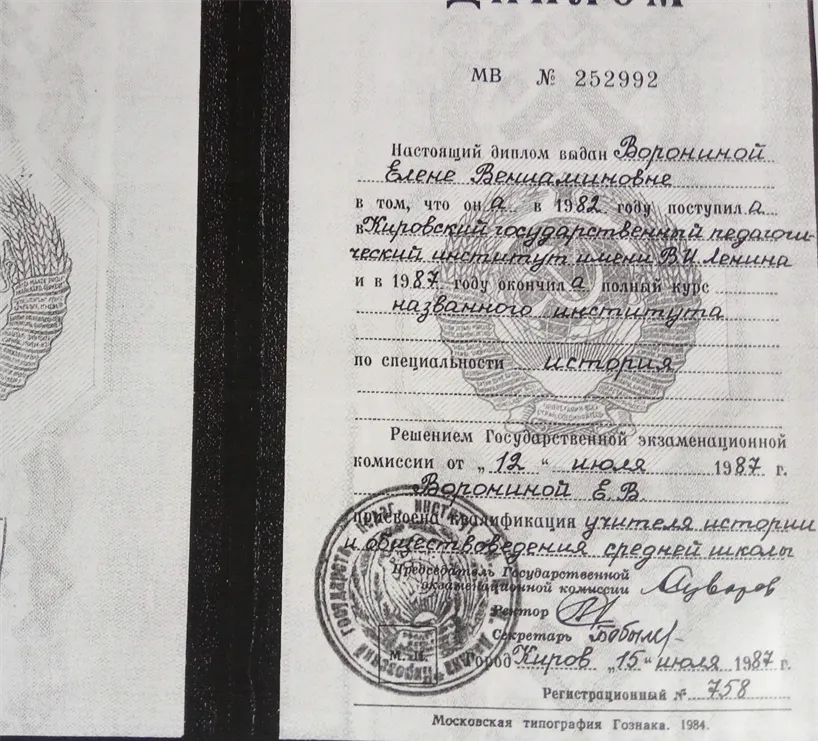 ДИПЛОМ
МВ № 252992
Настоящий диплом выдан Ворониной
Елене Вениаминовне
в том, что он а в 1982 году поступил а
в Кировский государственный педагоги-
ческий институт имени В.И. Ленина
и в 1987 году окончил а полный курс
названного института
по специальности история
Решением Государственной экзаменационной
комиссии от „12" июля 1987 г.
Ворониной Е.В.
присвоена квалификация учителя истории
и обществоведения средней школы
Председатель Государственной
экзаменационной комиссии
Ректор
Секретарь
М. П. Город Киров „15" июля 1987 г.
Регистрационный № 758
Московская типография Гознака. 1984.